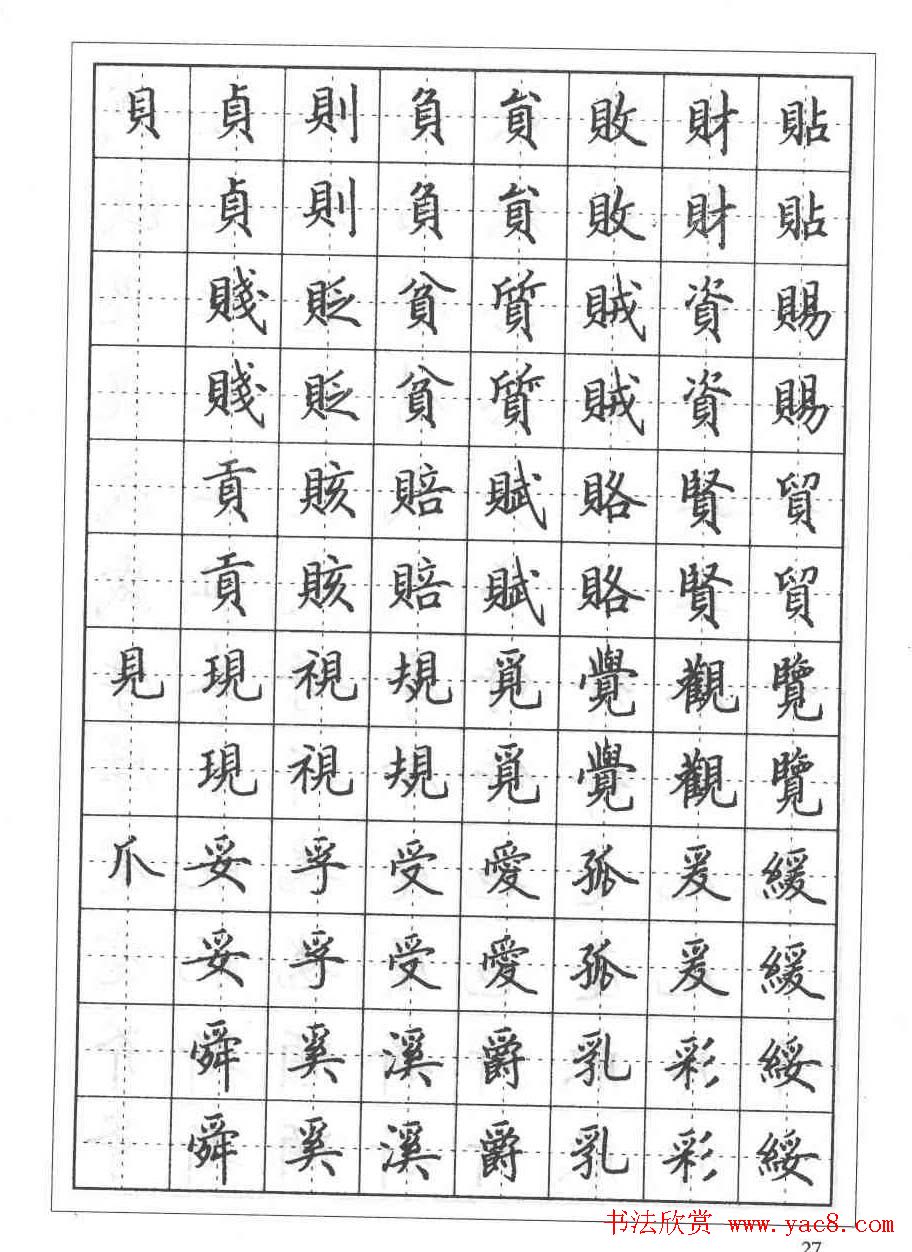 貝貞則負貟敗財貼
貞則負貟敗財貼
賤貶貧質賊資賜
賤貶貧質賊資賜
貢賅賠賦賂賢貿
貢賅賠賦賂賢貿
見現視規覓覺觀覽
現視規覓覺觀覽
爪妥孚受愛孤爰緩
妥孚受愛孤爰緩
舜奚溪爵乳彩綏
舜奚溪爵乳彩綏
书法欣赏 www.yac8.com
27